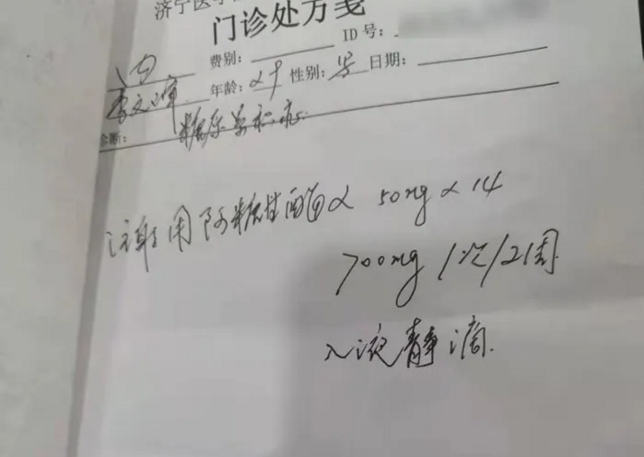 济宁医学
门诊处方笺
费别: ID号:
李文军 年龄: 24 性别: 男 日期:
诊断: 糖原累积症
注射用阿糖苷酶α 50mg × 14
700mg 1次/2周
入液静滴.